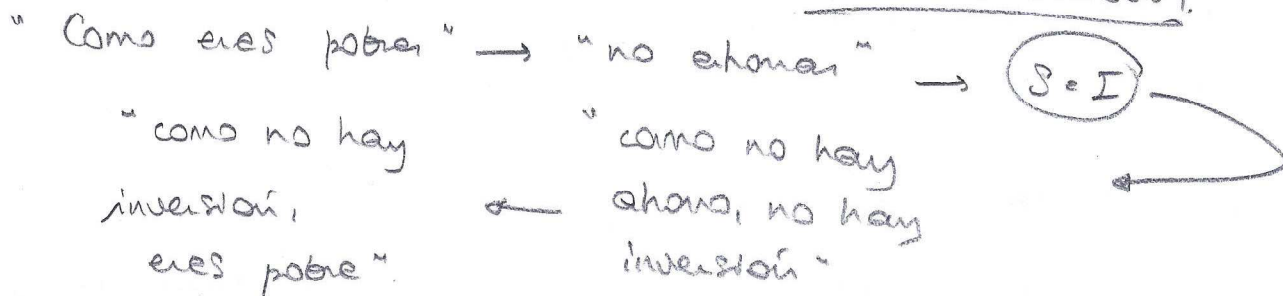 "Como eres pobre" → "no ahorras" → S=I
"como no hay
inversión,
eres pobre" ←
"como no hay
ahorro, no hay
inversión"